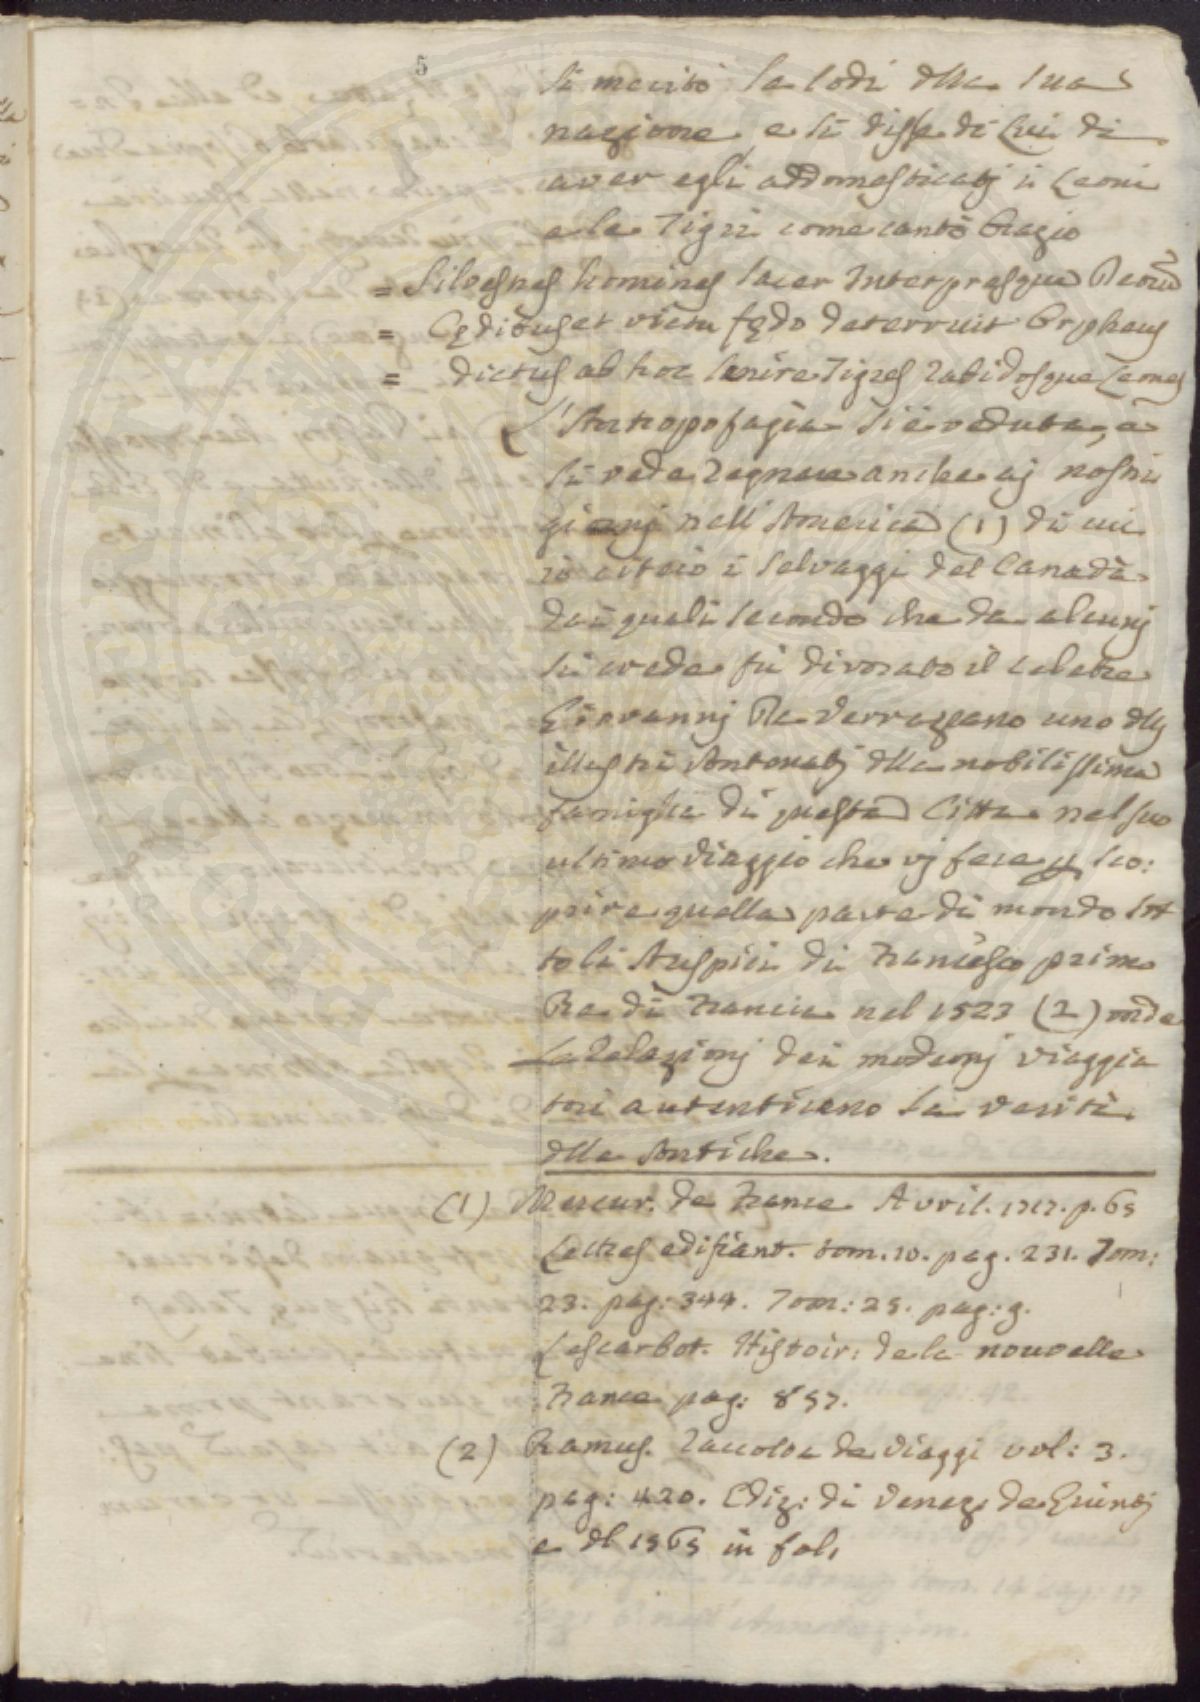 5
si meritò la lodi della sua
nazione, e si disse di Lui di
aver egli addomesticatj i Leoni
e le Tigri come cantò Orazio
= Silvestres homines sacer Interpresque Deorũ
= Cędibus et victu fędo deterruit Orpheus
= dictus ab hoc lenire Tigres rabidosque Leones
L'Antropofagia si è veduta, e
si vede regnare anche aj nostri
giornj nell'America (1) di cui
io citerò i Selvaggi del Canadà
dai quali secondo che da alcunj
si crede fù divorato il celebre
Giovannj Da Verrazzano uno dellj
illustri Antenatj della nobilissima
famiglia di questa Città nel suo
ultimo viaggio che vj fece p sco:
prire quella parte di mondo sot
to li Auspici di Francesco primo
Re di Francia nel 1523 (2) onde
Le Relazionj dei modernj viaggia
tori autenticano la verità
delle Antiche.
(1) Mercur. de France Avril. 1717. p. 65
Lettres edifiant. tom. 10. pag. 231. Tom:
23. pag: 344. Tom: 25. pag: 9.
Lescarbot. Histoir: de la nouvelle
France pag: 857.
(2) Ramus. Raccolta de Viaggi vol: 3.
pag: 420. Ediz: di Venez. de Giuntj
e del 1565 in fol.